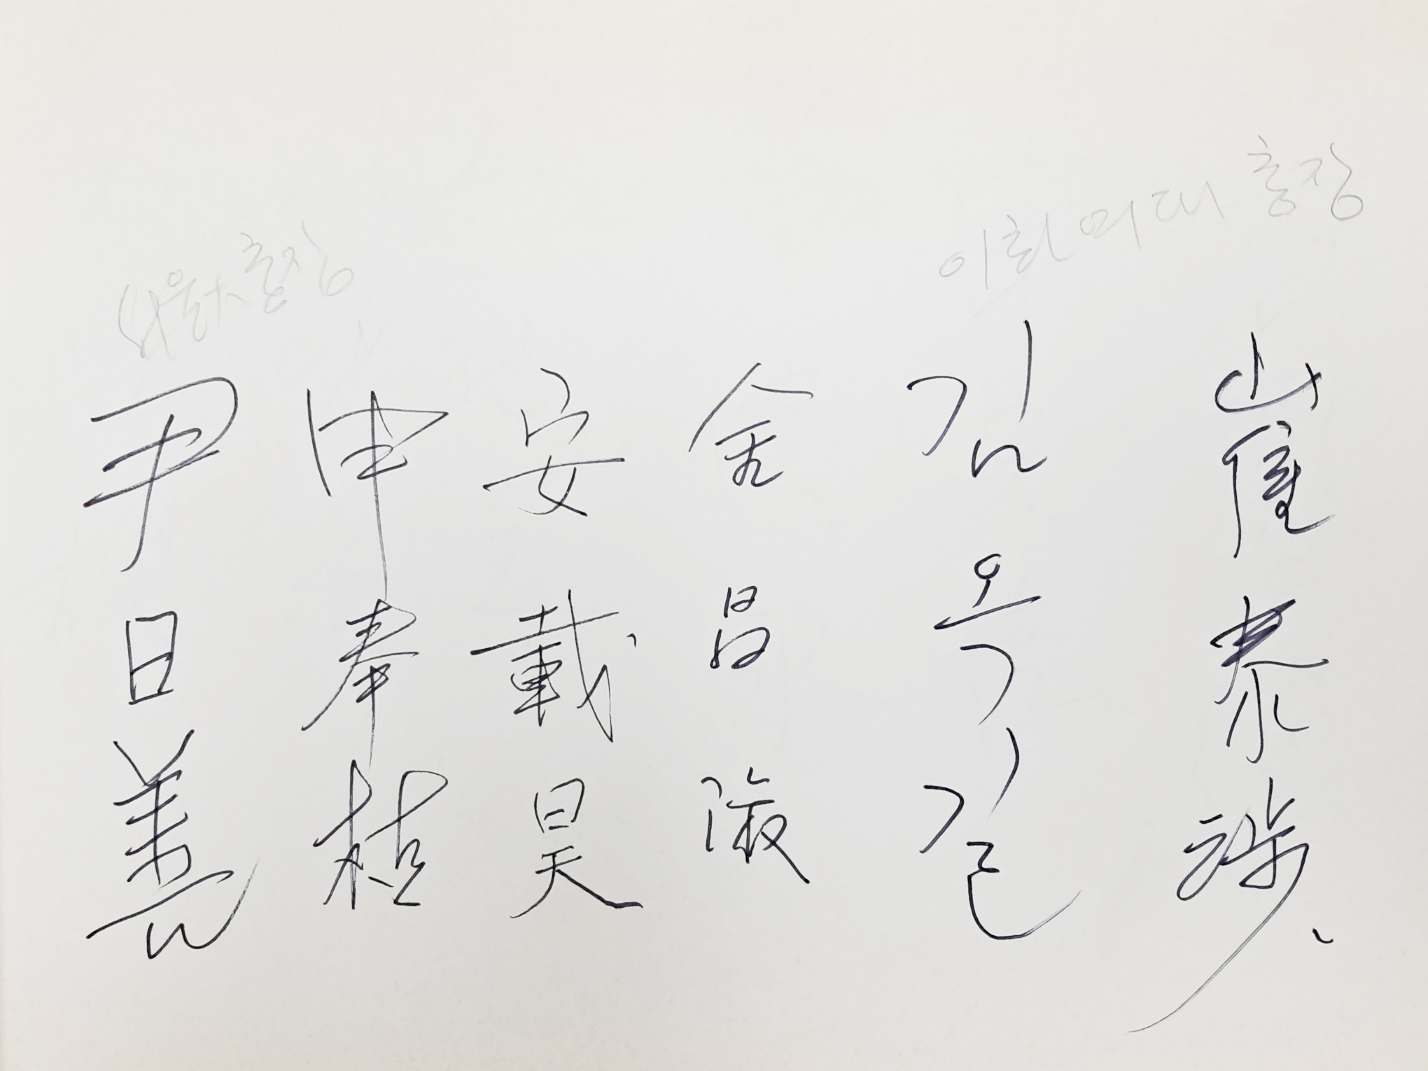 이화여대 총장
崔泰涉
김옥길
金昌
安載昊
申奉植
서울大 총장
尹日善